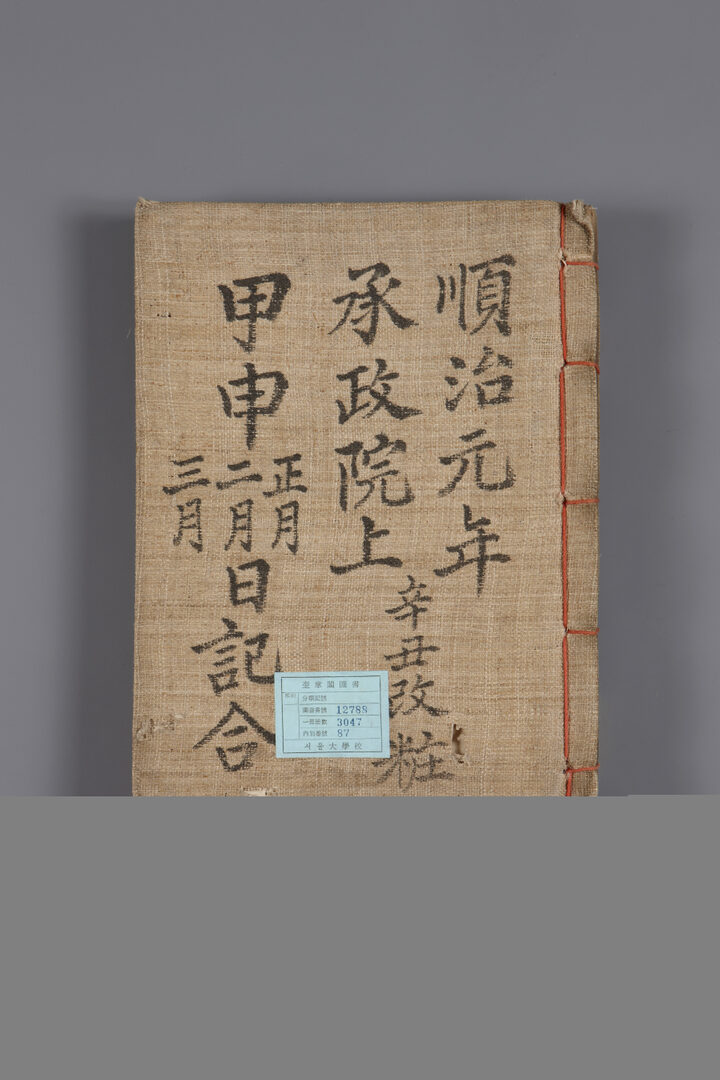 順治元年
承政院上
辛丑改粧
甲申
正月
二月
三月
日記合
奎章閣圖書
分類記號
圖書番號 12788
一部冊數 3047
內別番號 87
서울大學校